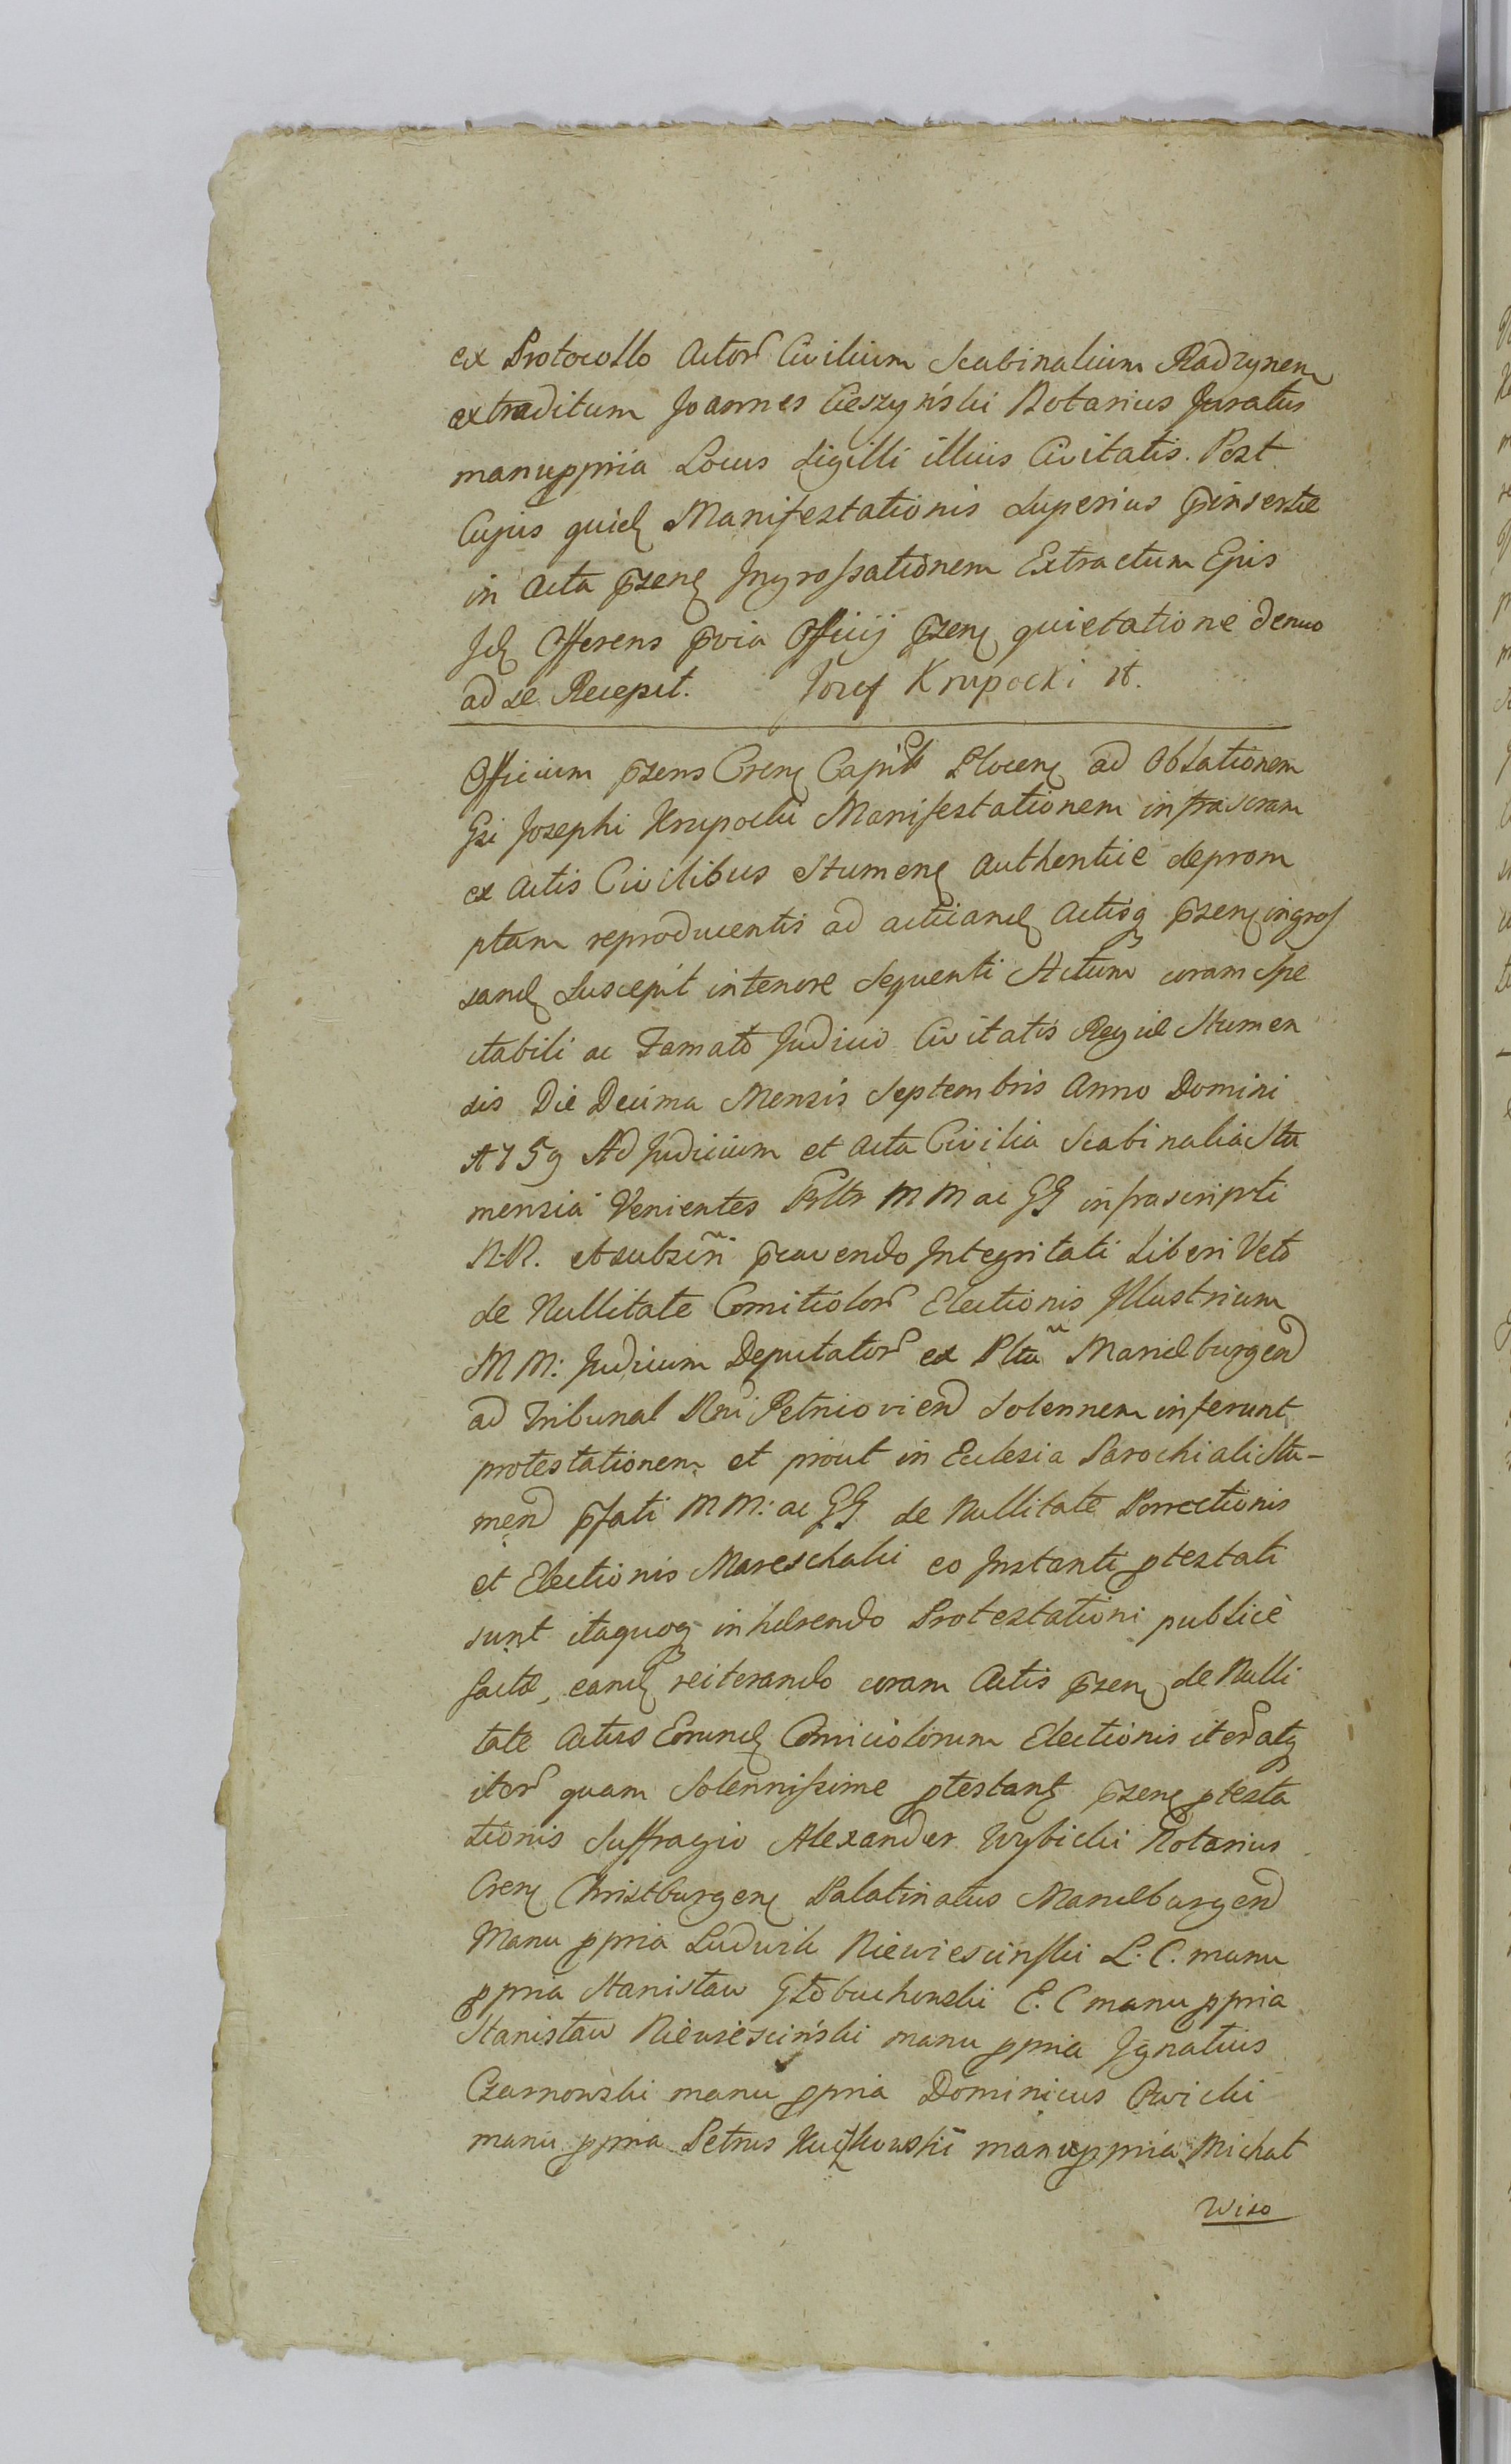 ex Protocollo Actor Civilium Scabinalium Radzynen
extraditum Joannes Cieszyński Notarius Juratus
manuppria Locus Sigilli illius Civitatis. Post
Cujus quid Manifestationis Superius pinsertæ
in Acta pzen Ingrossationem Extractum Ejus
Id Offerens pvia Officij pzen quietatione denuo
ad se Recepit. Jozef Krupocki
Officium pzens Cren Capit Plocen ad Oblationem
Gsi Josephi Krupocki Manifestationem infrascram
ex Actis Civilibus Stumen Authentice deprom
ptam reproducentis ad acticand Actisq pzen ingros
sand Suscepit in tenore Sequenti Actum coram Spe
ctabili ac Famato Judicio Civitatis Regiæ Stumen
sis Die Decima Mensis Septembris Anno Domini
1759 Ad Judicium et Acta Civilia Scabinalia Stu
mensia Venientes MM ac GG infrascripti
N.N. et subscri pcavendo Integritati Liberi Veto
de Nullitate Comitiolor Electionis Illustrium
MM: Judicum Deputator ex Pltu Mariæburgen
ad Tribunal Rni Petricovien Solennem inferunt
protestationem et prout in Eclesia Parochiali Stu-
men pfati MM: ac GG de Nullitate Porrectionis
et Electionis Mareschalci eo Instanti ptestati
sunt itaquoq inhærendo Protestationi publicè
factæ, eand reiterando coram Actis pzen de Nulli
tate Actus Eorund Comiciolorum Electionis iter atq
iter quam Solennissime ptestant pzen ptesta
tionis Suffragio Alexander Wybicki Notarius
Cren Christburgen Palatinatus Mariæburgen
Manu ppria Ludwik Niewiescinski L. C. manu
ppria Stanisław Głobuchowski E. C manu ppria
Stanisław Niewiesciński manu ppria Ignatius
Czarnowski manu ppria Dominicus Owicki
manu ppria Petrus manuppria Michał
Wiso